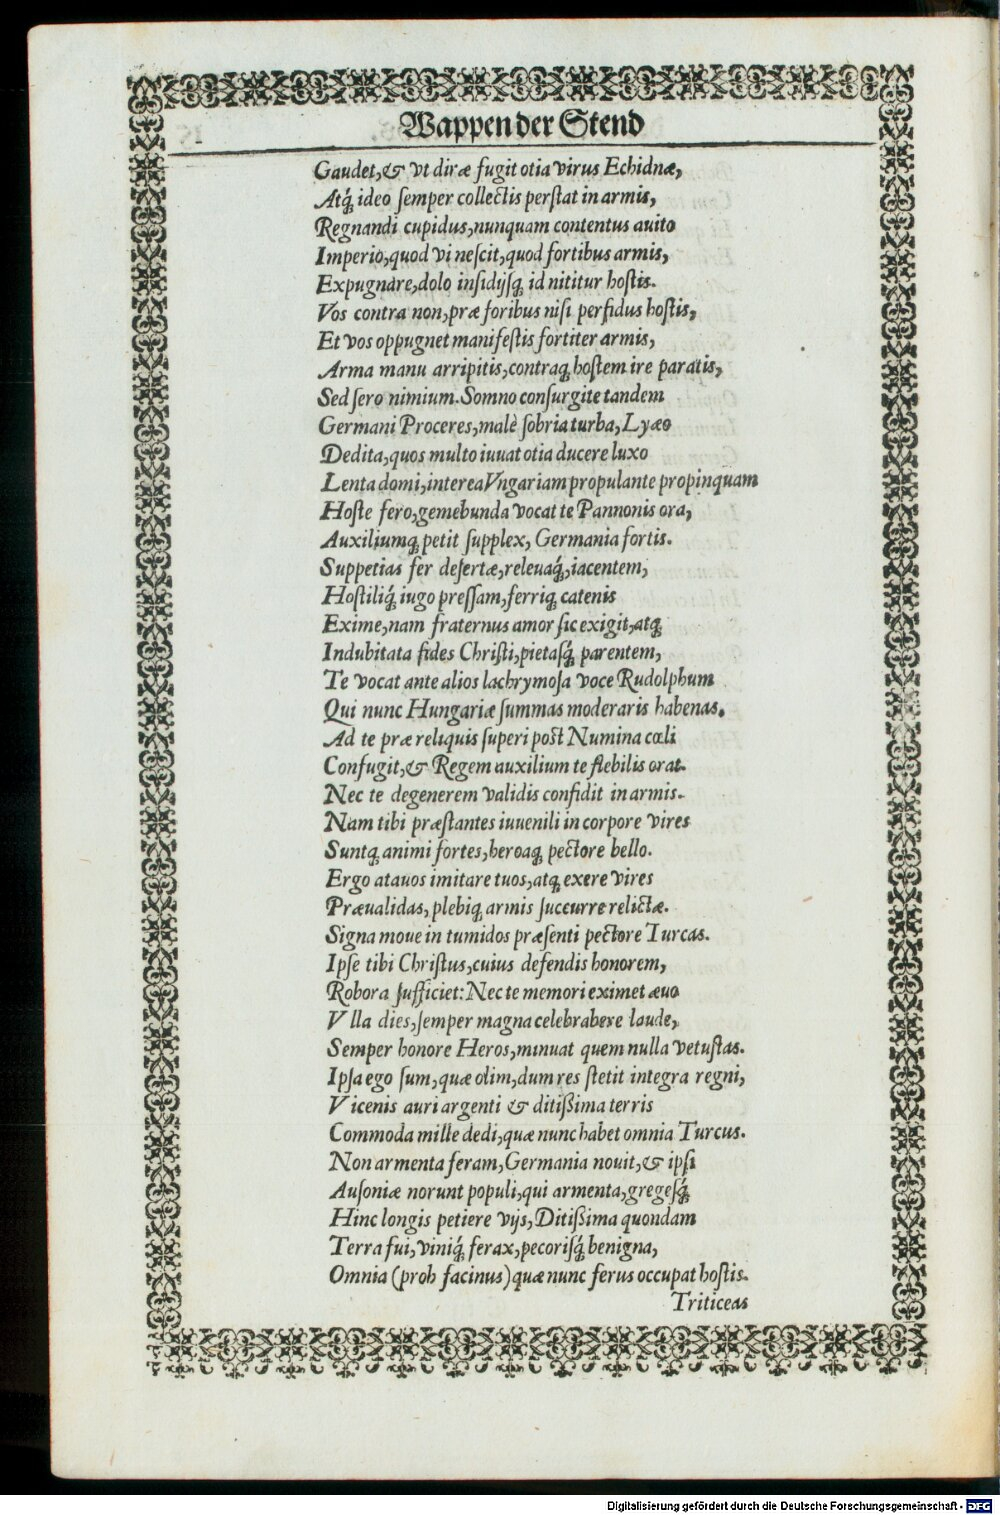 Wappen der Stend
Gaudet, & vt diræ fugit otia virus Echidnæ,
Atq́; ideo ſemper collectis perſtat in armis,
Regnandi cupidus, nunquam contentus auito
Imperio, quod vi neſcit, quod fortibus armis,
Expugnare, dolo inſidijſq; id nititur hoſtis.
Vos contra non, præ foribus niſi perfidus hoſtis,
Et vos oppugnet manifeſtis fortiter armis,
Arma manu arripitis, contraq; hoſtem ire paratis,
Sed ſero nimium. Somno conſurgite tandem
Germani Proceres, malè ſobria turba, Lyæo
Dedita, quos multo iuuat otia ducere luxo
Lenta domi, interea Vngariam propulante propinquam
Hoſte fero, gemebunda vocat te Pannonis ora,
Auxiliumq; petit ſupplex, Germania fortis.
Suppetias fer deſertæ, releuaq́;, iacentem,
Hoſtiliq́; iugo preſſam, ferriq; catenis
Exime, nam fraternus amor ſic exigit, atq;
Indubitata fides Chriſti, pietaſq́; parentem,
Te vocat ante alios lachrymoſa voce Rudolphum
Qui nunc Hungariæ ſummas moderaris habenas.
Ad te præ reliquis ſuperi poſt Numina cœli
Confugit, & Regem auxilium te flebilis orat.
Nec te degenerem validis confidit in armis.
Nam tibi præſtantes iuuenili in corpore vires
Suntq; animi fortes, heroaq; pectore bello.
Ergo atauos imitare tuos, atq; exere vires
Præualidas, plebiq; armis ſuccurre relictæ.
Signa moue in tumidos præſenti pectore Turcas.
Ipſe tibi Chriſtus, cuius defendis honorem,
Robora ſufficiet: Nec te memori eximet æuo
Vlla dies, ſemper magna celebrabere laude,
Semper honore Heros, minuat quem nulla vetuſtas.
Ipſa ego ſum, quæ olim, dum res ſtetit integra regni,
Vicenis auri argenti & ditißima terris
Commoda mille dedi, quæ nunc habet omnia Turcus.
Non armenta feram, Germania nouit, & ipſi
Auſoniæ norunt populi, qui armenta, gregeſq́;
Hinc longis petiere vijs, Ditißima quondam
Terra fui, viniq́; ferax, pecoriſq́; benigna,
Omnia (proh facinus) quæ nunc ferus occupat hoſtis.
Triticeas
Digitalisierung gefördert durch die Deutsche Forschungsgemeinschaft - DFG